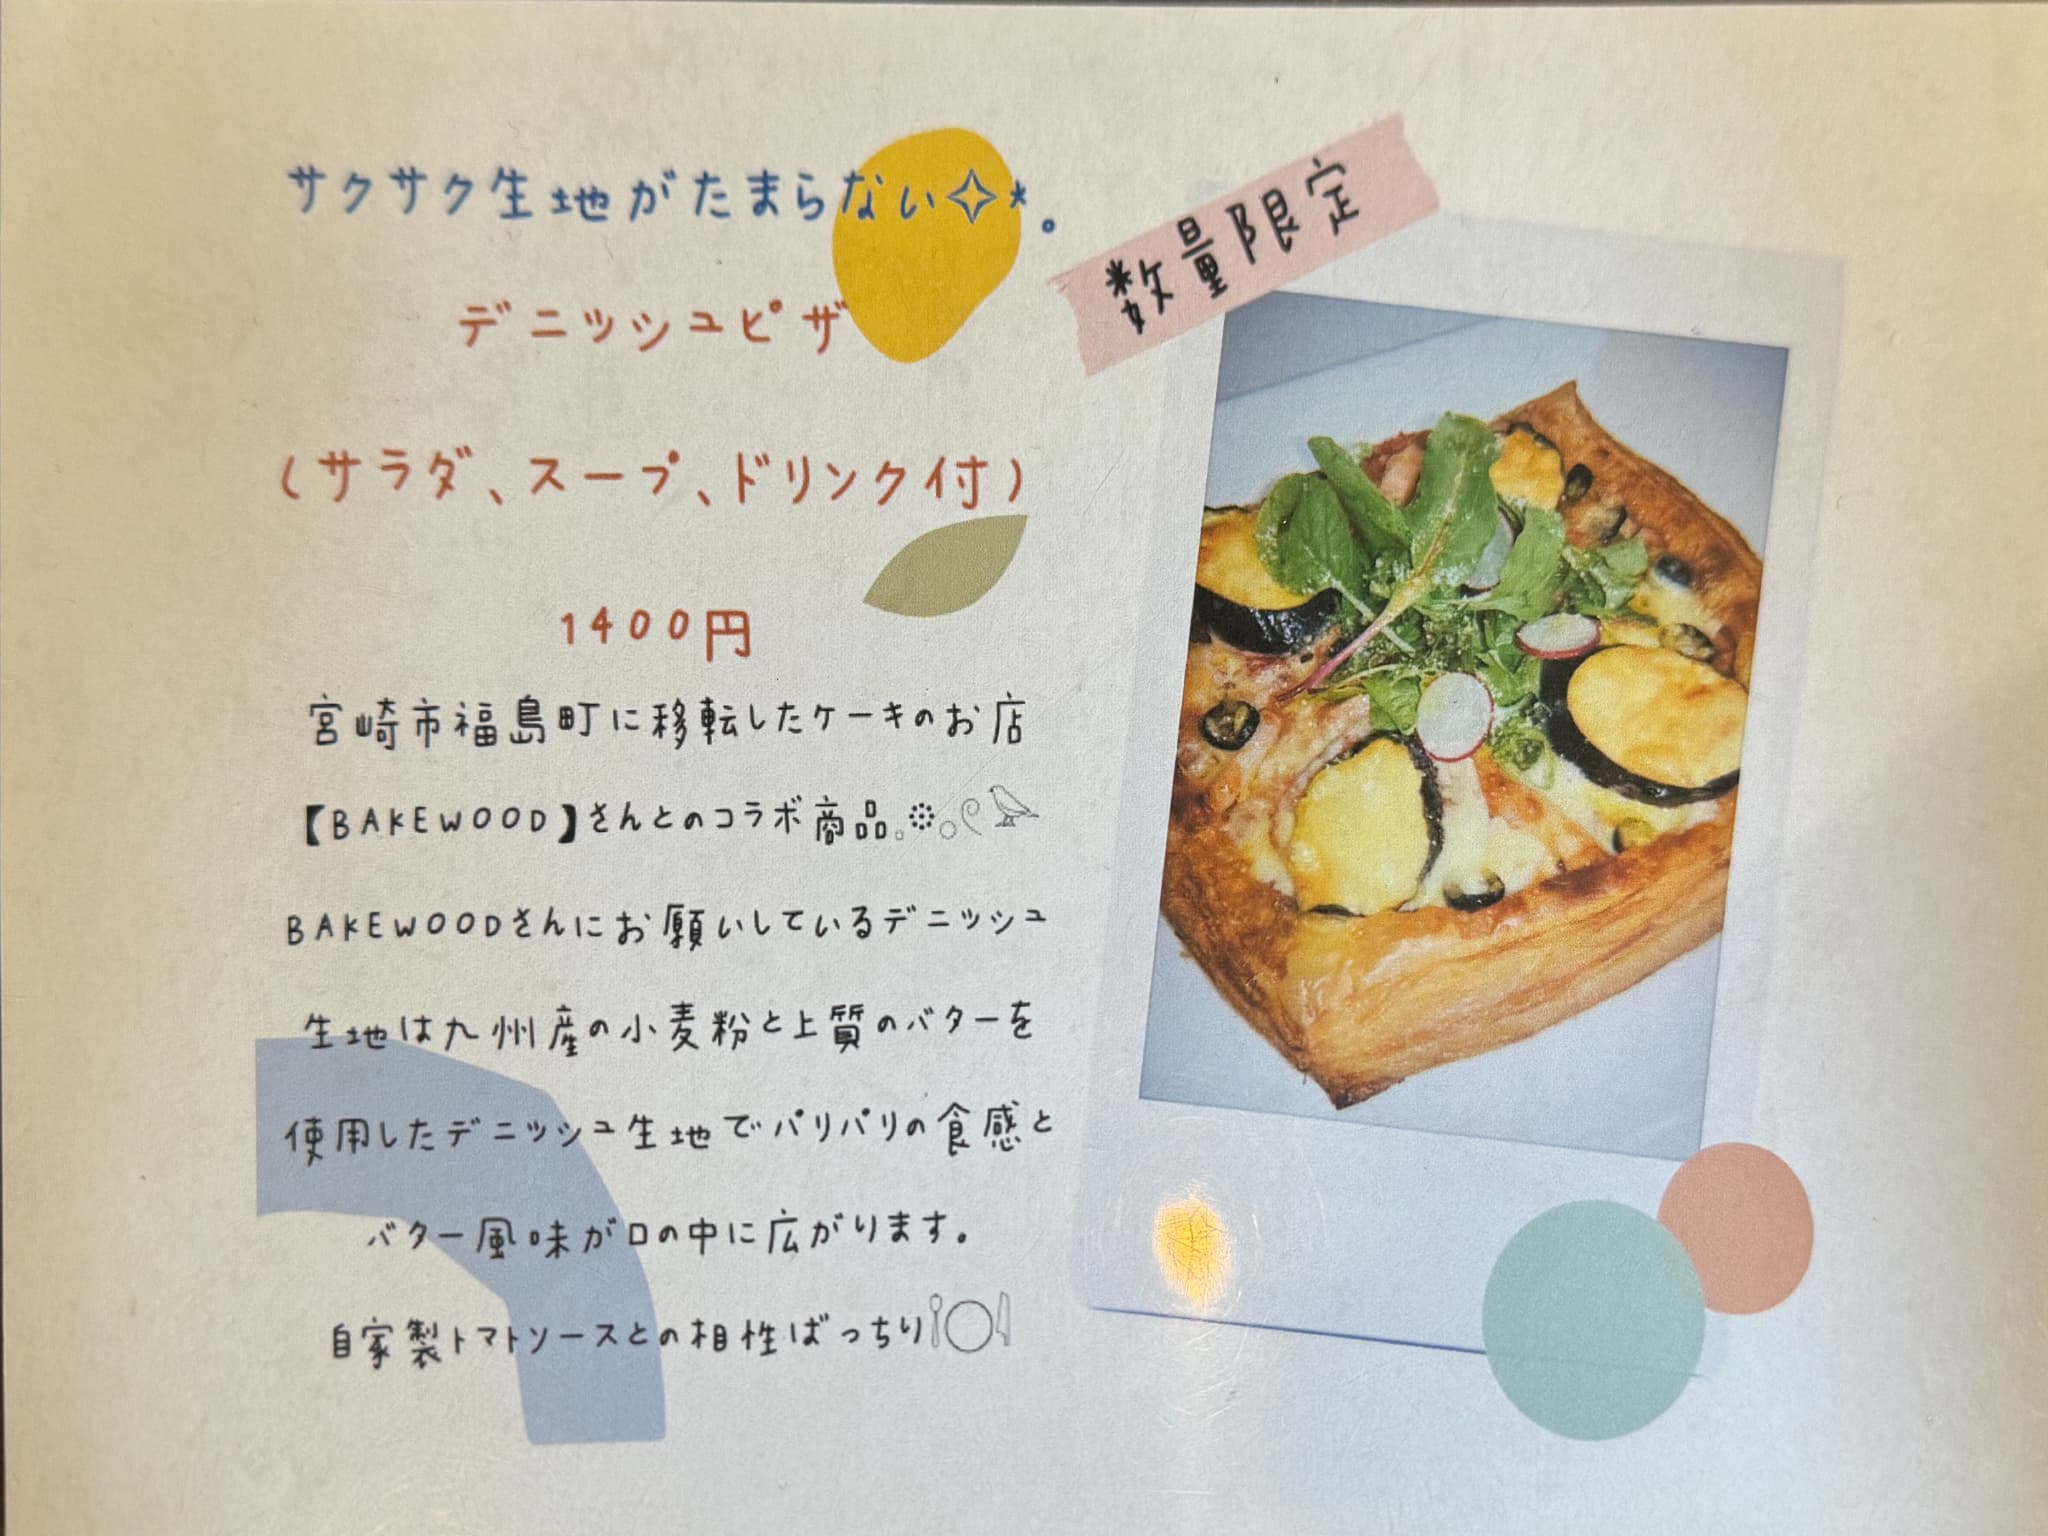 サクサク生地がたまらない✧*。
数量限定
デニッシュピザ
(サラダ、スープ、ドリンク付)
1400円
宮崎市福島町に移転したケーキのお店
【BAKEWOOD】さんとのコラボ商品
BAKEWOODさんにお願いしているデニッシュ
生地は九州産の小麦粉と上質のバターを
使用したデニッシュ生地でパリパリの食感と
バター風味が口の中に広がります。
自家製トマトソースとの相性ばっちり🍽